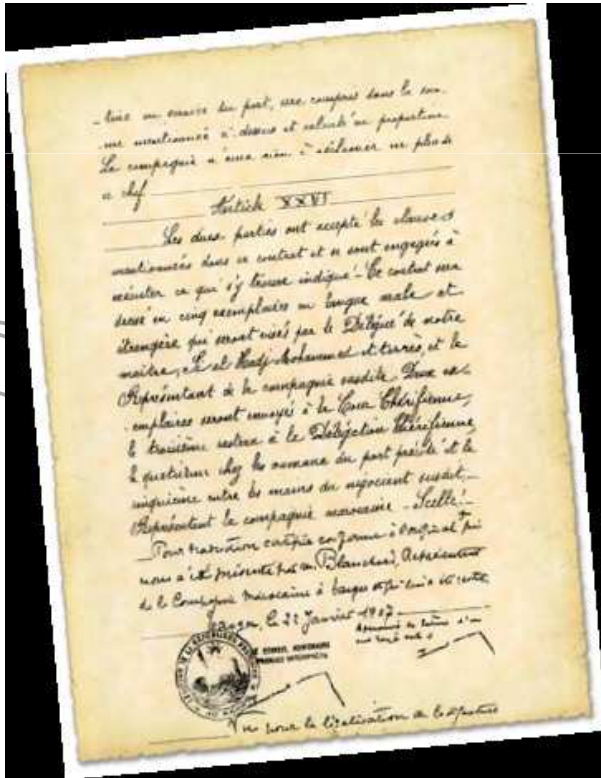 au service du port, sera compris dans la som-
-me mentionnée ci dessus et calculé en proportion
La compagnie n'aura rien à réclamer en plus de
ce chef
Article XXVI
Les deux parties ont accepté les clauses
mentionnées dans ce contrat et se sont engagées à
exécuter ce qui s'y trouve indiqué - Ce contrat sera
dressé en cinq exemplaires en langue arabe et
étrangère qui seront visés par le Délégué de notre
maître, El Hadj Mohammed et torrès, et le
Représentant de la compagnie susdite. Deux ex-
-emplaires seront envoyés à la Cour Chérifienne,
le troisième restera à la Délégation Chérifienne,
le quatrième chez les oumana du port précité et le
cinquième entre les mains du négociant susdit,
Représentant la compagnie marocaine - Scellé!
Pour traduction certifiée conforme à l'original qui
nous a été présenté par M. Blanchard, Représentant
de la Compagnie Marocaine à Tanger
Tanger, le 22 Janvier 1907
LE CONSUL HONORAIRE
PREMIER INTERPRÈTE
Vu pour la légalisation de la signature